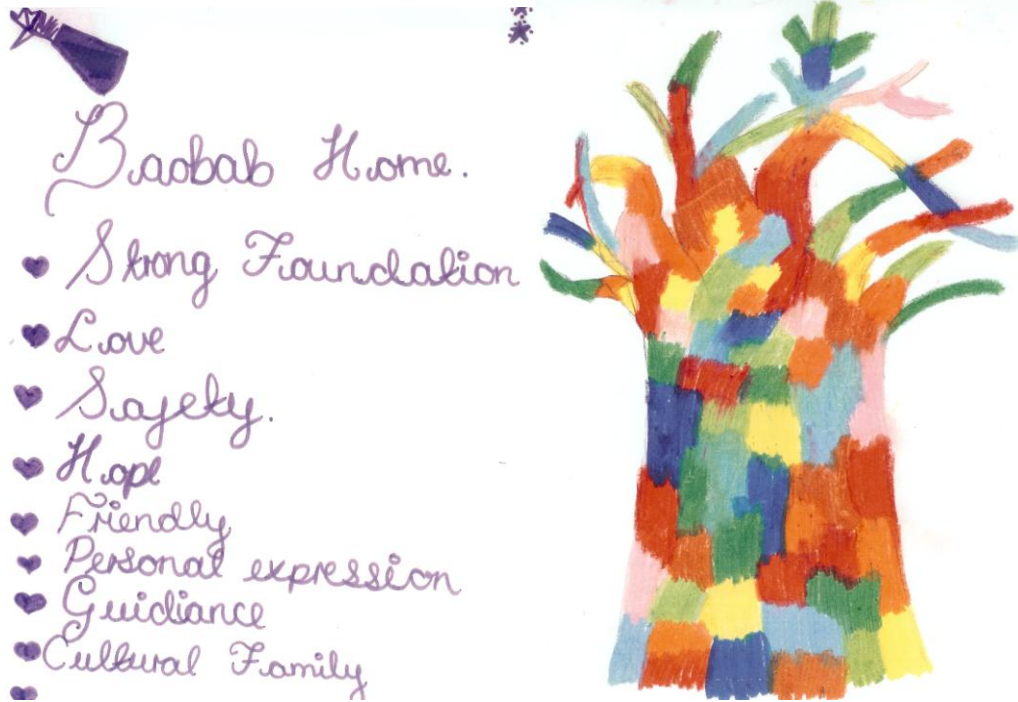 Baobab Home.
Strong Foundation
Love
Safety.
Hope
Friendly
Personal expression
Guidiance
Cultural Family